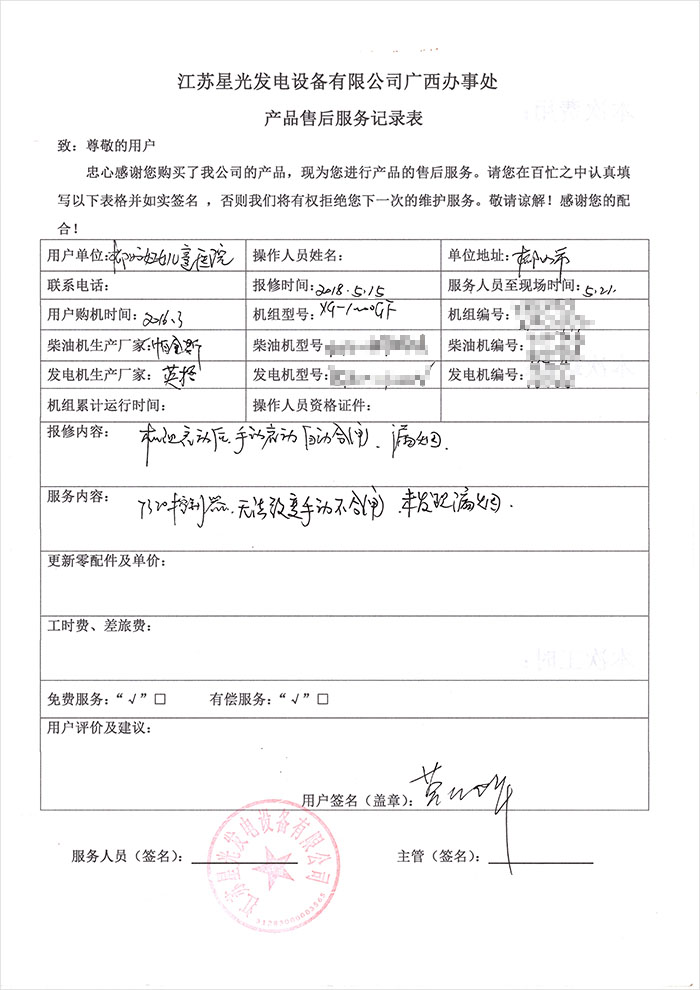 江苏星光发电设备有限公司广西办事处
产品售后服务记录表
致：尊敬的用户
忠心感谢您购买了我公司的产品，现为您进行产品的售后服务。请您在百忙之中认真填
写以下表格并如实签名 ，否则我们将有权拒绝您下一次的维护服务。敬请谅解！感谢您的配
合！
用户单位：柳州妇女儿童医院 操作人员姓名： 单位地址：柳州市
联系电话： 报修时间：2018.5.15 服务人员至现场时间：5.21.
用户购机时间：2016.3 机组型号：XG-1000GF 机组编号：
柴油机生产厂家： 柴油机型号： 柴油机编号：
发电机生产厂家：英格 发电机型号： 发电机编号：
机组累计运行时间： 操作人员资格证件：
报修内容： 机组启动后，手动启动自动合闸、漏烟.
服务内容： 7320控制器无法改变手动不合闸 未发现漏烟.
更新零配件及单价：
工时费、差旅费：
免费服务：“√”□ 有偿服务：“√”□
用户评价及建议：
用户签名（盖章）：
服务人员（签名）： 主管（签名）：
江苏星光发电设备有限公司